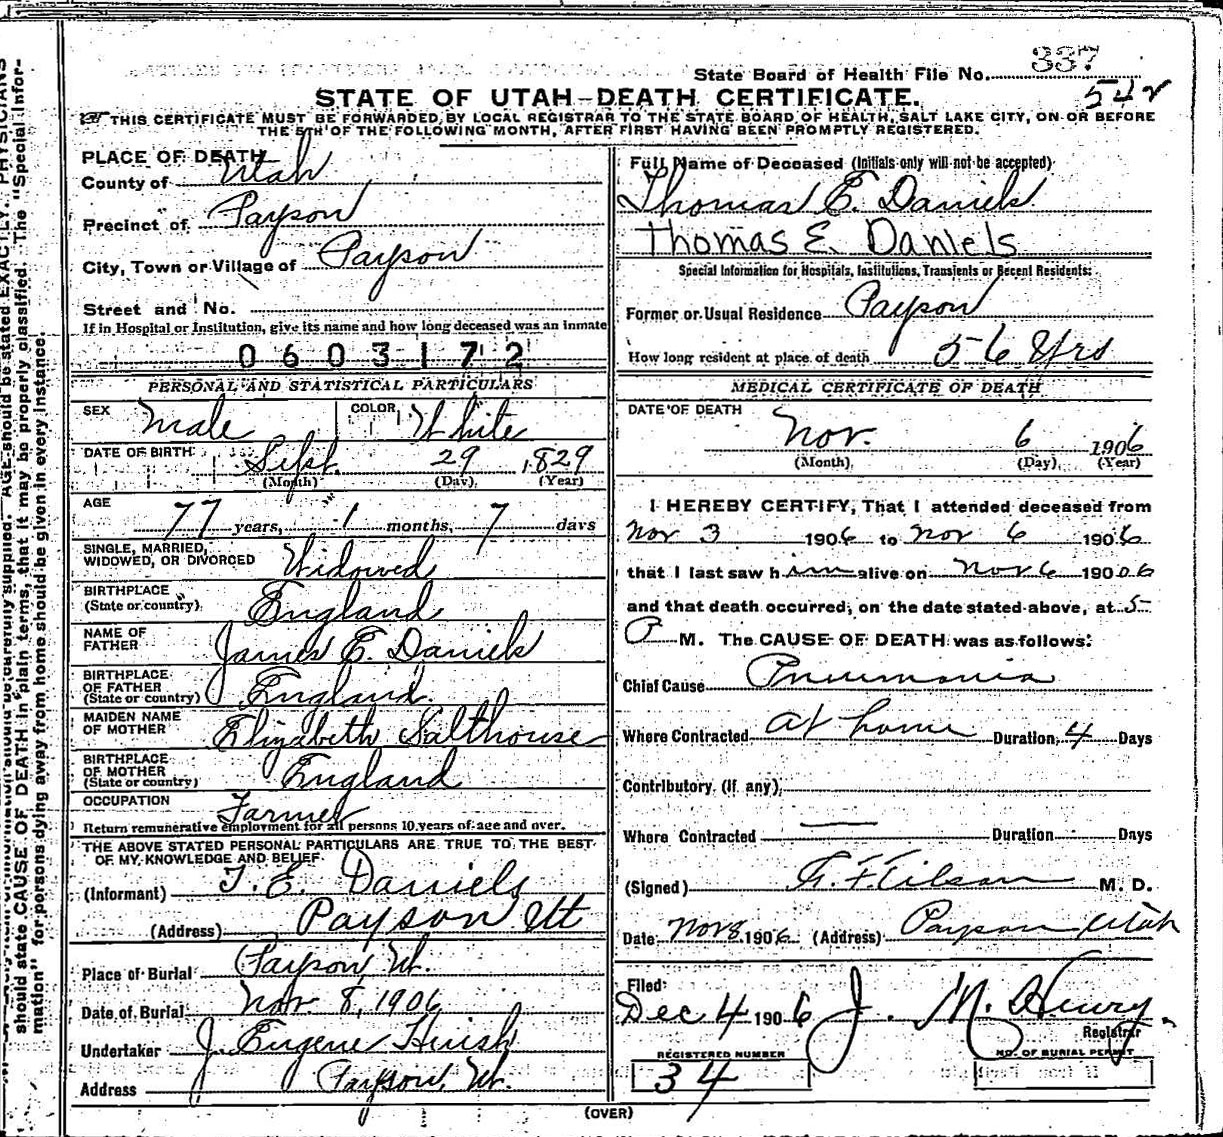 State Board of Health File No. 337
542
STATE OF UTAH—DEATH CERTIFICATE.
THIS CERTIFICATE MUST BE FORWARDED BY LOCAL REGISTRAR TO THE STATE BOARD OF HEALTH, SALT LAKE CITY, ON OR BEFORE
THE 5TH OF THE FOLLOWING MONTH, AFTER FIRST HAVING BEEN PROMPTLY REGISTERED.
PLACE OF DEATH
County of Utah
Precinct of Payson
City, Town or Village of Payson
Street and No.
If in Hospital or Institution, give its name and how long deceased was an inmate
0603172
PERSONAL AND STATISTICAL PARTICULARS
SEX Male COLOR White
DATE OF BIRTH Sept. 29, 1829
(Month) (Day) (Year)
AGE 77 years, 1 months, 7 days
SINGLE, MARRIED,
WIDOWED, OR DIVORCED Widowed
BIRTHPLACE
(State or country) England
NAME OF
FATHER James E. Daniels
BIRTHPLACE
OF FATHER
(State or country) England
MAIDEN NAME
OF MOTHER Elizabeth Salthouse
BIRTHPLACE
OF MOTHER
(State or country) England
OCCUPATION Farmer
Return remunerative employment for all persons 10 years of age and over.
THE ABOVE STATED PERSONAL PARTICULARS ARE TRUE TO THE BEST
OF MY KNOWLEDGE AND BELIEF
(Informant) T. E. Daniels
(Address) Payson Ut
Place of Burial Payson, Ut.
Date of Burial Nov. 8, 1906
Undertaker J. Eugene Hirish
Address Payson, Ut.
Full Name of Deceased (Initials only will not be accepted)
Thomas E. Daniels
Thomas E. Daniels
Special Information for Hospitals, Institutions, Transients or Recent Residents:
Former or Usual Residence Payson
How long resident at place of death 56 Yrs
MEDICAL CERTIFICATE OF DEATH
DATE OF DEATH Nov. 6 1906
(Month) (Day) (Year)
I HEREBY CERTIFY, That I attended deceased from
Nov 3 1906 to Nov 6 1906
that I last saw him alive on Nov 6 1906
and that death occurred, on the date stated above, at 5
P M. The CAUSE OF DEATH was as follows:
Chief Cause Pneumonia
Where Contracted at home Duration 4 Days
Contributory (If any)
Where Contracted — Duration Days
(Signed) M. D.
Date Nov 8 1906 (Address) Payson Utah
Filed
Dec 4 1906 J. M. Henry.
Registrar
REGISTERED NUMBER
34
NO. OF BURIAL PERMIT
(OVER)
AGE should be stated EXACTLY. PHYSICIANS
should state CAUSE OF DEATH in plain terms, that it may be properly classified. The "Special Infor-
mation" for persons dying away from home should be given in every instance.